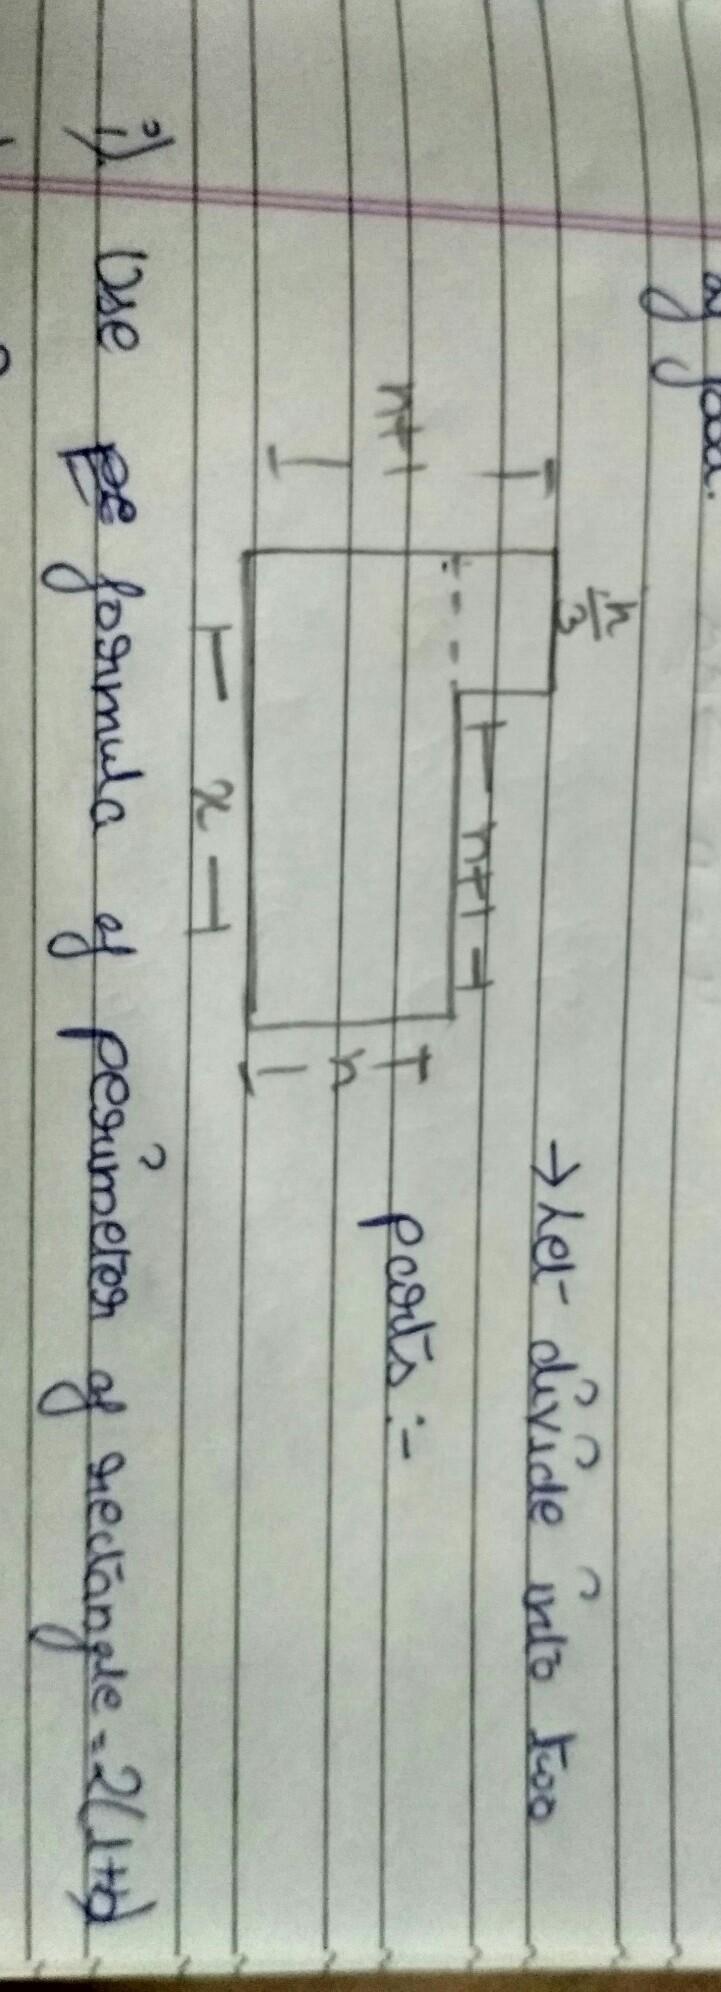 of
→ Let divide into two
parts :-
n/3
n+1
n+1
n
x
i) Use formula of perimeter of rectangle = 2(l+b)